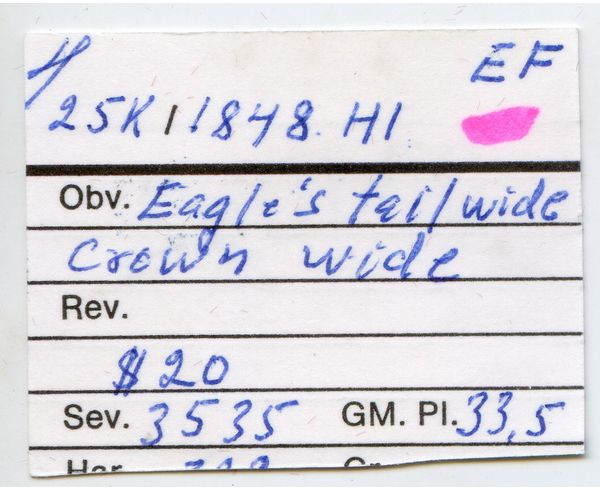 EF
25K 1848 HI
Obv. Eagle's tail wide
Crown wide
Rev.
$20
Sev. 3535 GM. Pl. 33,5